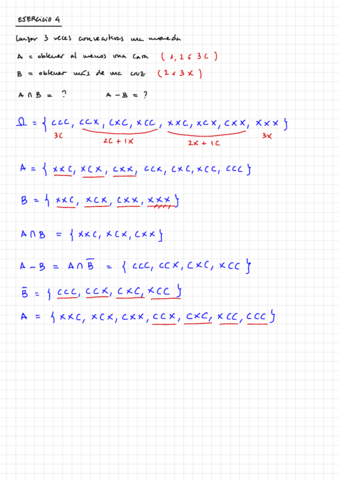 EJERCICIO 4
Lanzar 3 veces consecutivas una moneda
A = obtener al menos una cara (1, 2 ó 3 C)
B = obtener más de una cruz (2 ó 3 X)
A ∩ B = ? A - B = ?
Ω = { CCC, CCX, CXC, XCC, XXC, XCX, CXX, XXX }
3C 2C + 1X 2X + 1C 3X
A = { XXC, XCX, CXX, CCX, CXC, XCC, CCC }
B = { XXC, XCX, CXX, XXX }
A ∩ B = { XXC, XCX, CXX }
A - B = A ∩ B̅ = { CCC, CCX, CXC, XCC }
B̅ = { CCC, CCX, CXC, XCC }
A = { XXC, XCX, CXX, CCX, CXC, XCC, CCC }